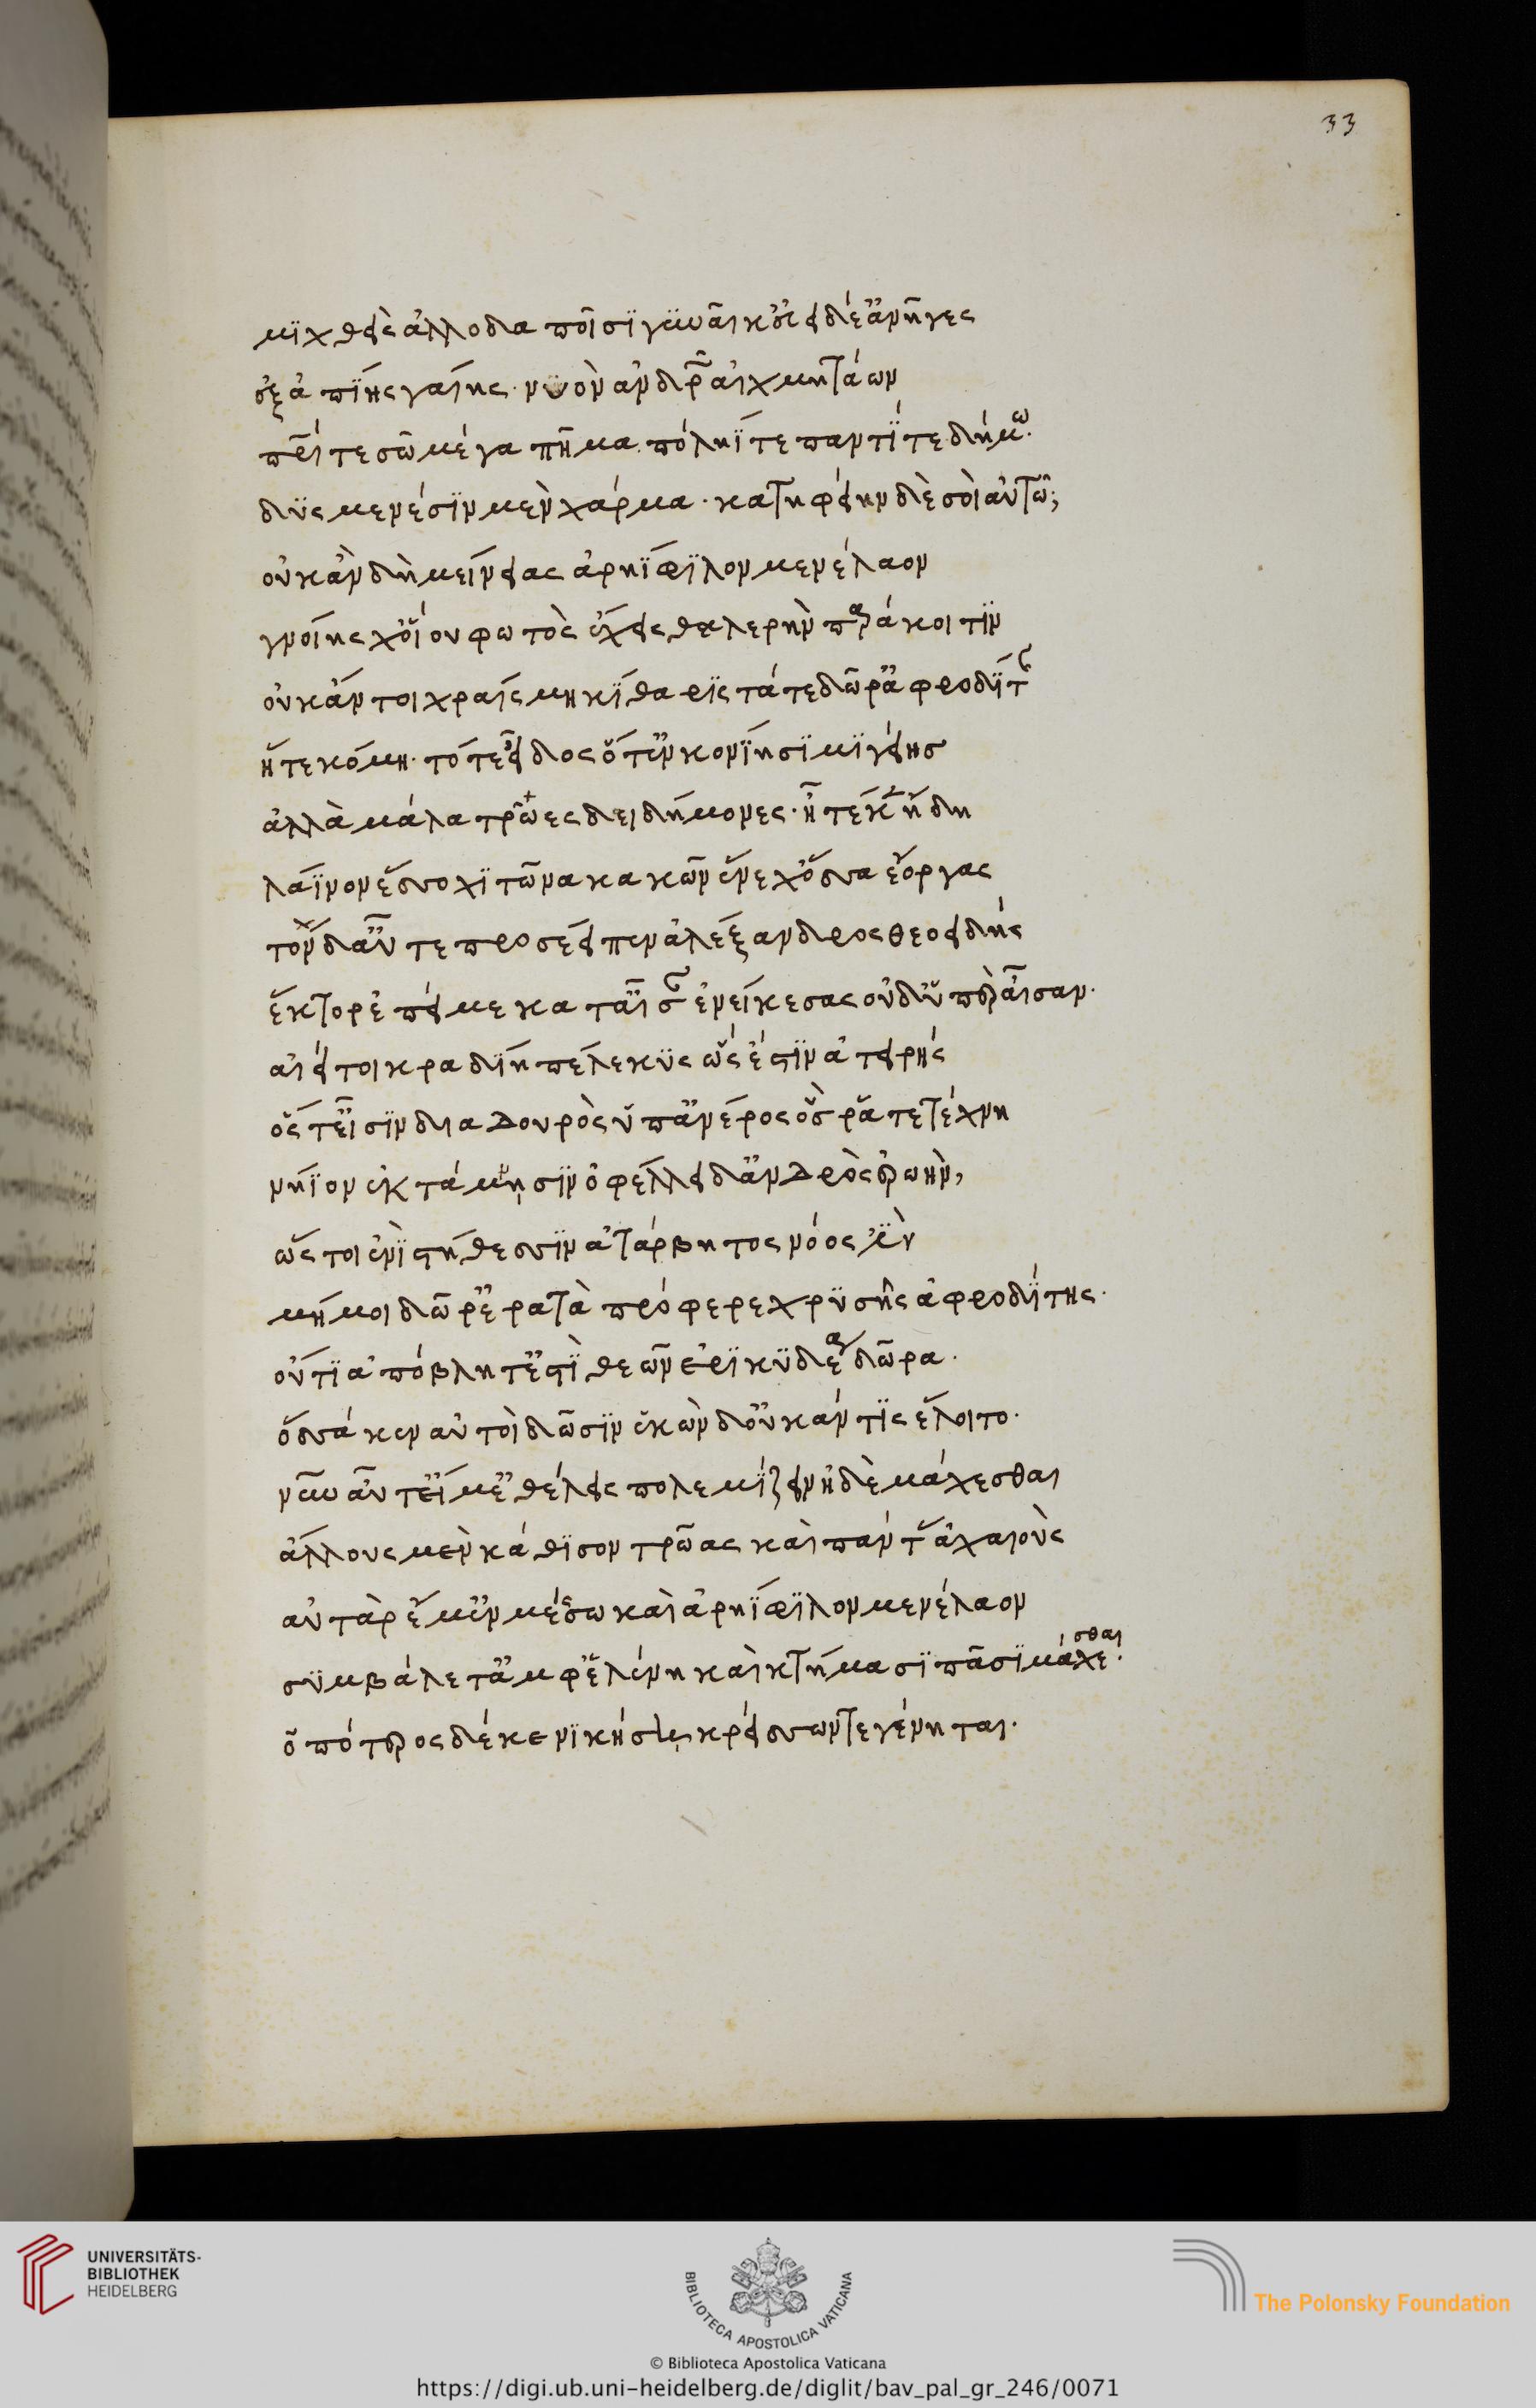 33
μιχθεὶς ἀλλοδαποῖσι γυναῖκ' εὐειδέ' ἀνῆγες
ἐξ ἀπίης γαίης· νυὸν ἀνδρῶν αἰχμητάων
πατρί τε σῶ μέγα πῆμα. πόληΐ τε παντί τε δήμω.
δυσμενέσιν μὲν χάρμα· κατηφείην δὲ σοὶ αὐτῶ;
οὐκ ἂν δὴ μείνειας ἀρηΐφιλον μενέλαον
γνοίης χ' οἵου φωτὸς ἔχεις θαλερὴν παράκοιτιν
οὐκ ἄν τοι χραίσμη κίθαρις τά τε δῶρ' ἀφροδίτης
ἥ τε κόμη. τό τε εἶδος ὅτ' ἐν κονίησι μιγείης
ἀλλὰ μάλα τρῶες δειδήμονες· ἦ τέ κεν ἤδη
λάϊνον ἕσσο χιτῶνα κακῶν ἕνεχ' ὅσσα ἔοργας
τὸν δ' αὖτε προσέειπεν ἀλέξανδρος θεοειδής
ἕκτορ ἐπεί με κατ' αἶσαν ἐνείκεσας οὐδ' ὑπὲρ αἶσαν.
αἰεί τοι κραδίη πέλεκυς ὥς ἐστιν ἀτειρής
ὅς τ' εἶσιν δια δουρὸς ὑπ' ἀνέρος ὅς ῥά τε τέχνη
νήϊον ἐκτάμνησιν ὀφέλλει δ' ἀνδρὸς ἐρωὴν,
ὥς τοι ἐνὶ στήθεσσιν ἀτάρβητος νόος ἐστὶν
μή μοι δῶρ' ἐρατὰ πρόφερε χρυσῆς ἀφροδίτης.
οὔτι ἀπόβλητ' ἐστὶ θεῶν ἐρικυδέα δῶρα.
ὅσσά κεν αὐτοὶ δῶσιν ἑκὼν δ' οὐκ ἄν τις ἕλοιτο.
νῦν αὖτ' εἴ μ' ἐθέλεις πολεμίζειν ἠδὲ μάχεσθαι
ἄλλους μὲν κάθισον τρῶας καὶ πάντας ἀχαιοὺς
αὐτὰρ ἔμ' ἐν μέσσω καὶ ἀρηΐφιλον μενέλαον
συμβάλετ' ἀμφ' ἑλένη καὶ κτήμασι πᾶσι μάχεσθαι.
ὁππότερος δέ κε νικήση κρείσσων τε γένηται.
UNIVERSITÄTS-
BIBLIOTHEK
HEIDELBERG
BIBLIOTECA APOSTOLICA VATICANA
© Biblioteca Apostolica Vaticana
The Polonsky Foundation
https://digi.ub.uni-heidelberg.de/diglit/bav_pal_gr_246/0071